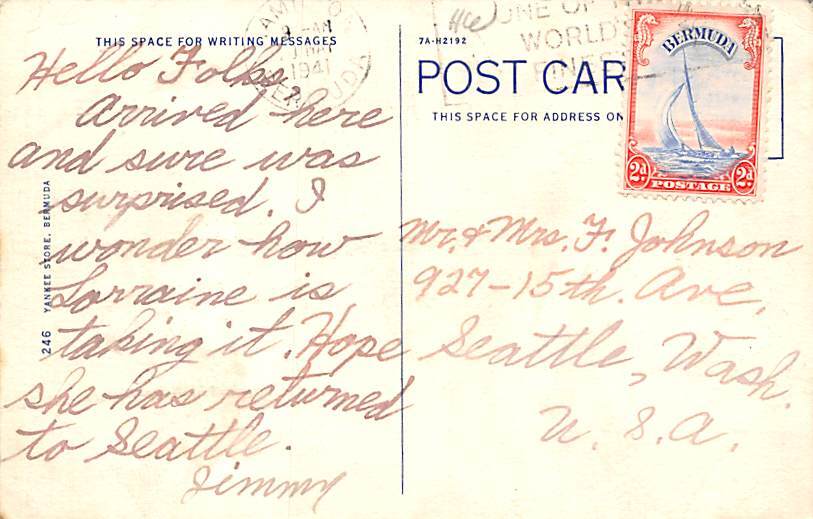 THIS SPACE FOR WRITING MESSAGES
Hello Folks,
Arrived here
and sure was
surprised. I
wonder how
Lorraine is
taking it. Hope
she has returned
to Seattle.
Jimmy
246 YANKEE STORE, BERMUDA
1941
7A-H2192
ONE OF
WORLD'S
POST CAR
THIS SPACE FOR ADDRESS ON
BERMUDA
2d POSTAGE 2d
Mr. & Mrs. F. Johnson
927-15th. Ave,
Seattle, Wash.
U. S. A.